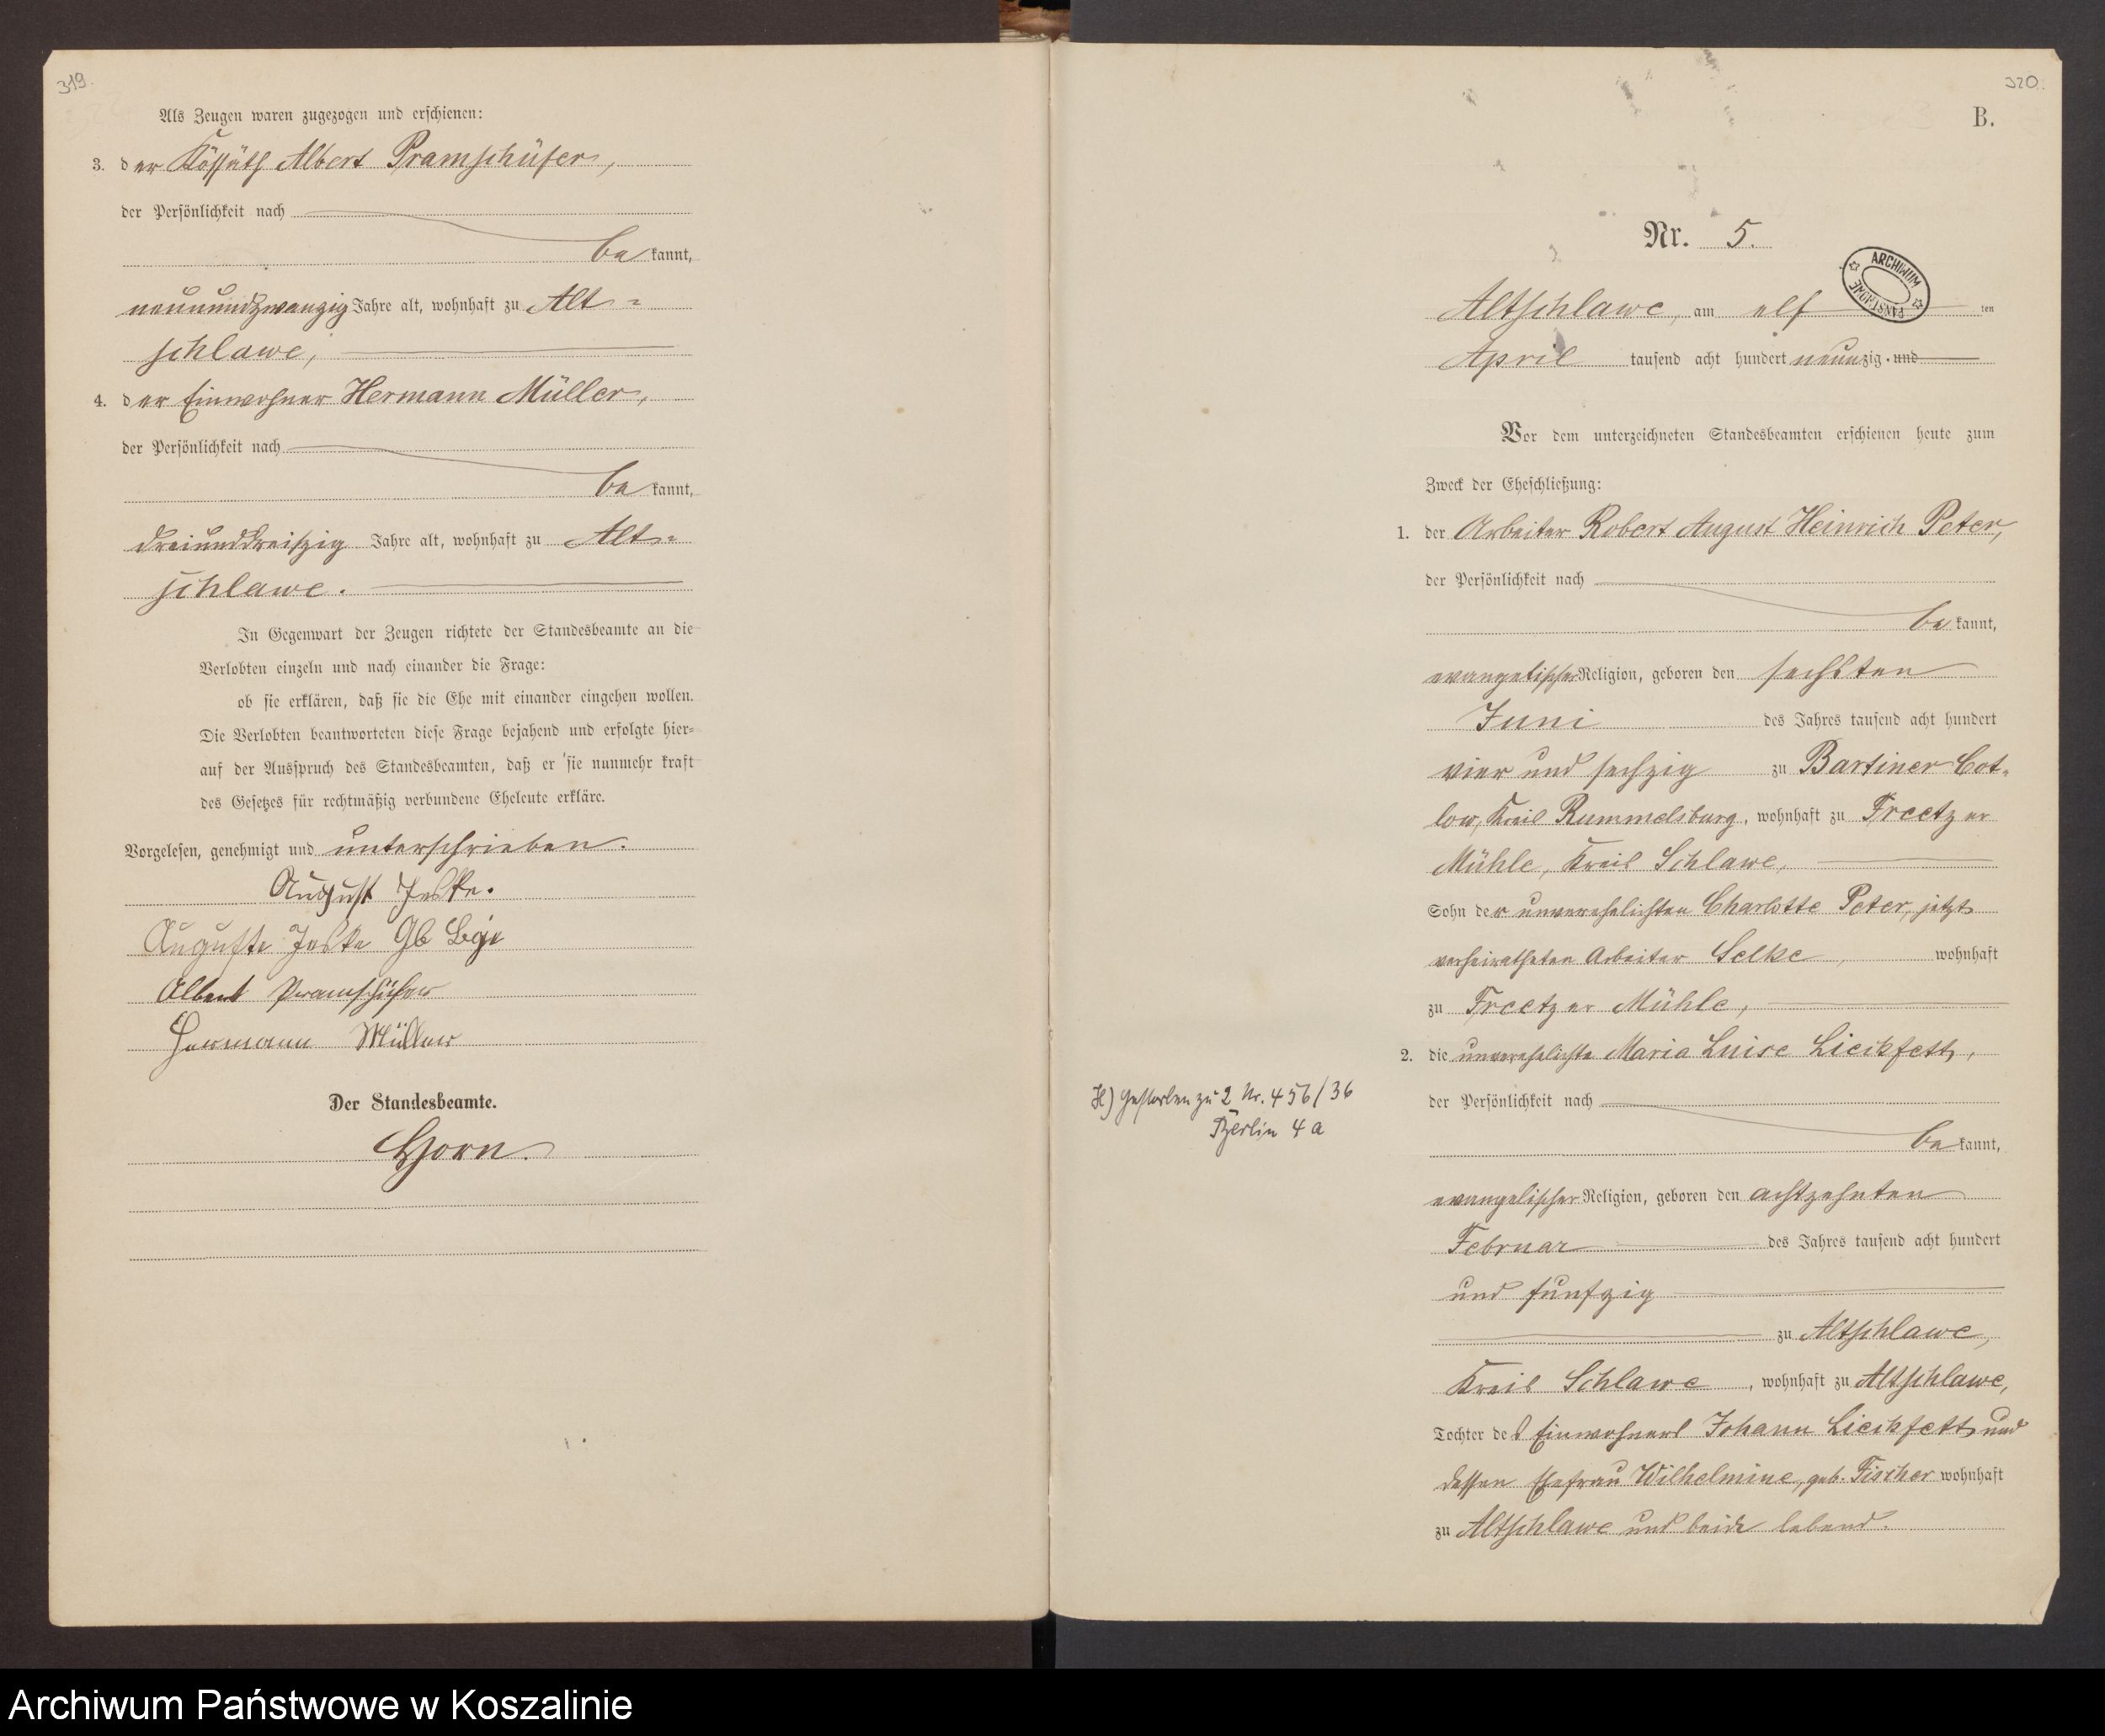 319.
Als Zeugen waren zugezogen und erschienen:
3. der Kossäth Albert Pramschüfer,
der Persönlichkeit nach
bekannt,
neunundzwanzig Jahre alt, wohnhaft zu Alt-
schlawe,
4. der Einwohner Hermann Müller,
der Persönlichkeit nach
bekannt,
dreiunddreißig Jahre alt, wohnhaft zu Alt-
schlawe.
In Gegenwart der Zeugen richtete der Standesbeamte an die
Verlobten einzeln und nach einander die Frage:
ob sie erklären, daß sie die Ehe mit einander eingehen wollen.
Die Verlobten beantworteten diese Frage bejahend und erfolgte hier-
auf der Ausspruch des Standesbeamten, daß er sie nunmehr kraft
des Gesetzes für rechtmäßig verbundene Eheleute erkläre.
Vorgelesen, genehmigt und unterschrieben.
August Jeske.
Auguste Jeske Gb
Albert Pramschüfer
Hermann Müller
Der Standesbeamte.
Horn.
320.
B.
Nr. 5.
ARCHIWUM PAŃSTWOWE
Altschlawe, am elf ten
April tausend acht hundert neunzig und
Vor dem unterzeichneten Standesbeamten erschienen heute zum
Zweck der Eheschließung:
1. der Arbeiter Robert August Heinrich Peter,
der Persönlichkeit nach
bekannt,
evangelischer Religion, geboren den sechsten
Juni des Jahres tausend acht hundert
vier und sechzig zu Bartiner Cot-
low, Kreis Rummelsburg, wohnhaft zu Freetzer
Mühle, Kreis Schlawe,
Sohn der unverehelichten Charlotte Peter, jetzt
verheiratheten Arbeiter Selke, wohnhaft
zu Freetzer Mühle,
2. die unverehelichte Maria Luise Lieckfett,
H) Gestorben zu 2 Nr. 456/36
Berlin 4a
der Persönlichkeit nach
bekannt,
evangelischer Religion, geboren den achtzehnten
Februar des Jahres tausend acht hundert
und funfzig
zu Altschlawe,
Kreis Schlawe, wohnhaft zu Altschlawe,
Tochter des Einwohners Johann Lieckfett und
dessen Ehefrau Wilhelmine, geb. Fischer wohnhaft
zu Altschlawe und beide lebend.
Archiwum Państwowe w Koszalinie